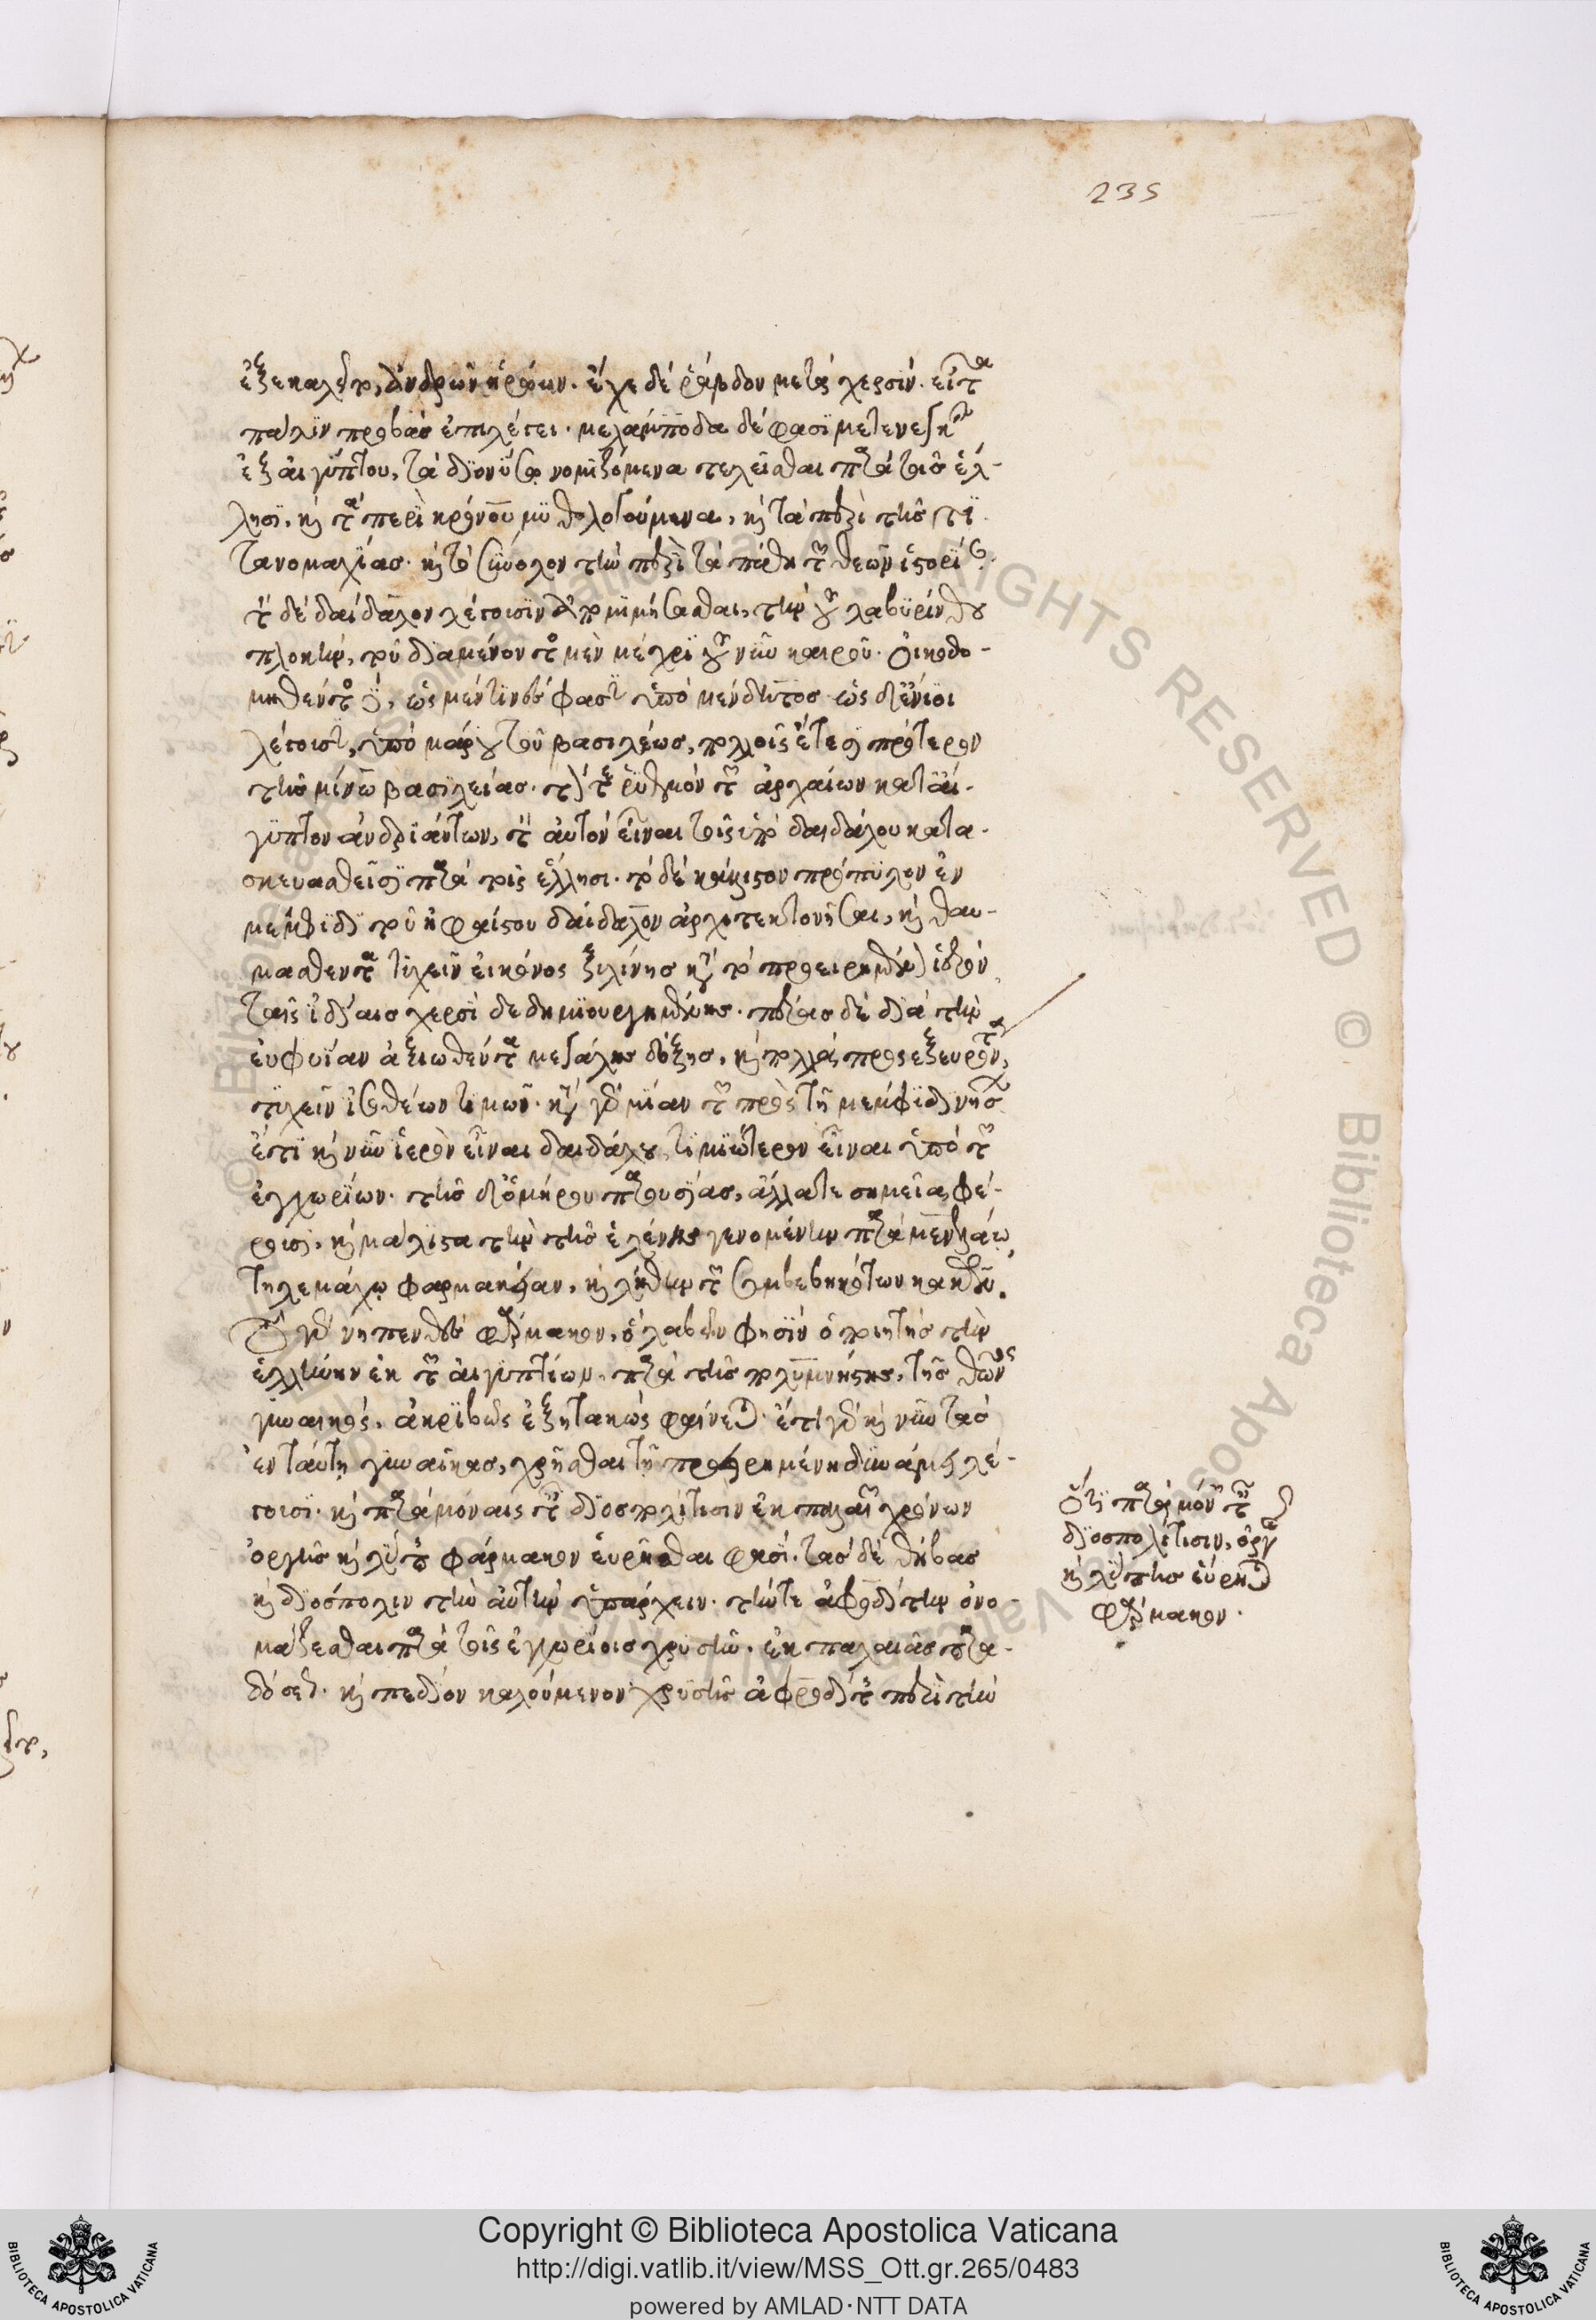 235
ἐξεκαλεῖτο, ἀνδρῶν ἡρώων. ἔχε δέ ῥάβδον μετὰ χερσίν. εἶτα
πάλιν προβὰς ἐπιλέγει. μελάμποδα δέ φασϊ μετενεγκεῖν
ἐξ αἰγύπτου, τὰ διονύσῳ νομιζόμενα τελεῖσθαι παρὰ τοῖς ἕλ-
λησϊ. καὶ τὰ περὶ κρόνου μυθολογούμενα, καὶ τὰ περὶ τῆς τϊ
τανομαχίας. καὶ τὸ σύνολον τὴν περὶ τὰ πάθη τῶν θεῶν ἱστορίαν.
τὸν δέ δαίδαλον λέγουσϊν ἀπομιμήσασθαι, τὴν τοῦ λαβυρίνθου
πλοκὴν, τοῦ διαμένοντος μὲν μέχρϊ τοῦ νῦν καιροῦ. οἰκοδο-
μηθέντος δέ, ὡς μέν τινές φασϊν ὑπὸ μένδητος. ὡς δ' ἔνϊοι
λέγουσϊν, ὑπὸ μάρου τοῦ βασιλέως, πολλοῖς ἔτεσι πρότερον
τῆς μίνω βασϊλείας. τόν τε ῥυθμόν τῶν ἀρχαίων κατ' αἴ-
γυπτον ἀνδριάντων, τὸν αὐτόν εἶναι τοῖς ὑπὸ δαιδάλου κατα-
σκευασθεῖσι παρὰ τοῖς ἕλλησι. τὸ δέ κάλλιστον πρόπυλον ἐν
μέμφιδι τοῦ ἡφαίστου δαίδαλον ἀρχιτεκτονῆσαι, καὶ θαυ-
μασθέντα τυχεῖν εἰκόνος ξυλίνης κατὰ τὸ προειρημένον ἱερόν
ταῖς ἰδίαις χερσὶ δεδημιουργημένης. πέρας δέ διὰ τὴν
εὐφυΐαν ἀξιωθέντα μεγάλης δόξης, καὶ πολλὰ προσεξευρόντα,
τυχεῖν ἰσοθέων τιμῶν. κατὰ γὰρ μίαν τῶν πρὸς τῇ μέμφιδι νήσων
ἔστι καὶ νῦν ἱερὸν εἶναι δαιδάλου, τιμϊώτερον εἶναι ὑπὸ τῶν
ἐγχωρίων. τῆς δ' ὁμήρου παρουσίας, ἄλλα τε σημεῖα φέ-
ρουσι, καὶ μάλιστα τὴν τῆς ἑλένης γενομένην παρὰ μενελάῳ
τηλεμάχῳ φαρμακείαν, καὶ λήθην τῶν συμβεβηκότων κακῶν.
τὸ γὰρ νηπενθὲς φάρμακον, ὃ λαβεῖν φησϊν ὁ ποιητής τὴν
ἑλένην ἐκ τῶν αἰγυπτίων, παρὰ τῆς πολυμνήστης, τῆς θῶνος
γυναικός, ἀκριβῶς ἐξητακώς φαίνεται. ἔτι γὰρ καὶ νῦν τὰς
ἐν ταύτῃ γυναῖκας, χρῆσθαι τῇ προειρημένῃ δυνάμει λέ-
γουσϊ. καὶ παρὰ μόναις ταῖς διοσπολίτισιν ἐκ παλαιῶν χρόνων
ὀργῆς καὶ λύπης φάρμακον εὑρῆσθαι φασϊ. τὰς δέ θήβας
καὶ διόσπολιν τὴν αὐτὴν ὑπάρχειν. τήν τε ἀφροδίτην ὀνο-
μάζεσθαι παρὰ τοῖς ἐγχωρίοις χρυσῆν. ἐκ παλαιᾶς παρα-
δόσεως. καὶ πεδίον καλούμενον χρυσῆς ἀφροδίτης περὶ τὴν
Ὅτι παρὰ μόναις ταῖς
διοσπολίτισιν, ὀργῆς
καὶ λύπης εὕρηται
φάρμακον.
Copyright © Biblioteca Apostolica Vaticana
http://digi.vatlib.it/view/MSS_Ott.gr.265/0483
powered by AMLAD·NTT DATA